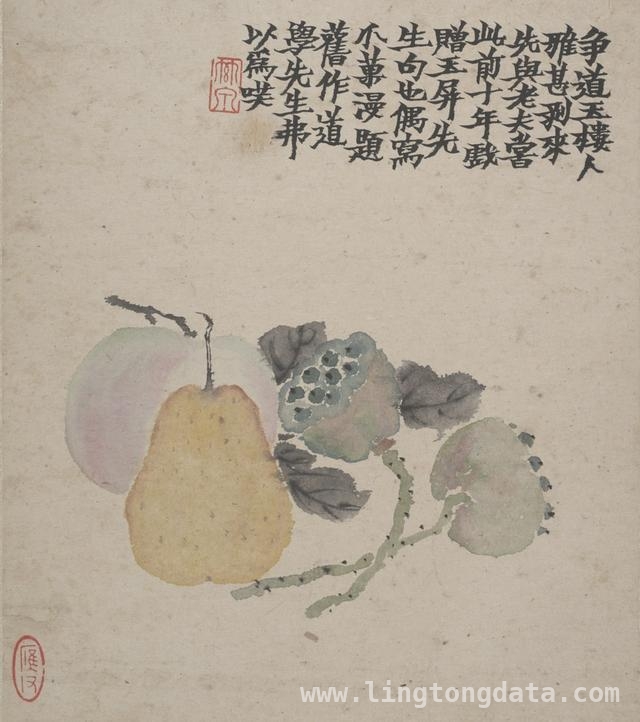 争道玉樓人
雅甚剥來
先與老夫嘗
此前十年戲
贈玉屏先
生句也偶寫
菓漫題
舊作道
學先生弗
以爲
www.lingtongdata.com